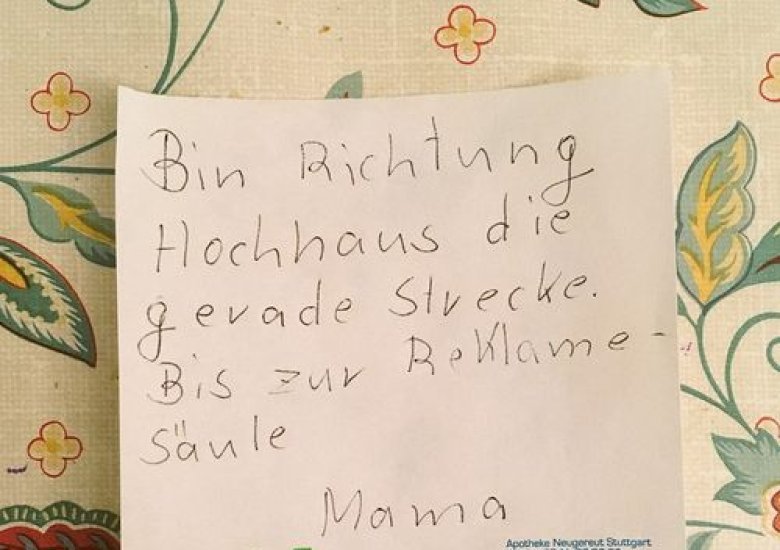 Bin Richtung
Hochhaus die
gerade Strecke.
Bis zur Reklame-
Säule
Mama
Apotheke Neugereut Stuttgart